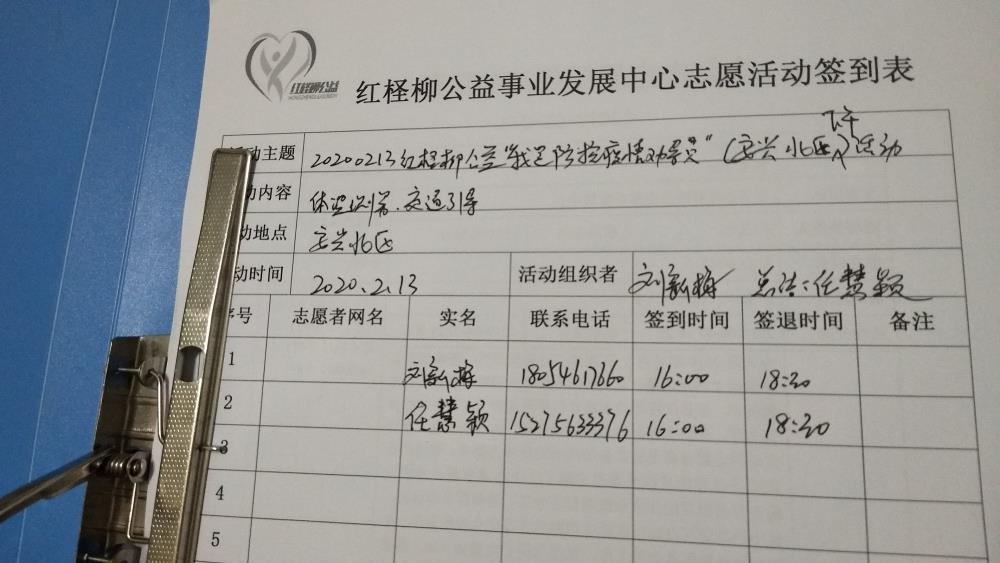 红柽柳公益
红柽柳公益事业发展中心志愿活动签到表
动主题 20200213红柽柳公益"我是防控疫情功导员"(安兴北区)下午活动
动内容 体温测常、交通引导
动地点 安兴北区
动时间 2020.2.13 活动组织者 刘新梅 总结:任慧颖
序号 志愿者网名 实名 联系电话 签到时间 签退时间 备注
1 刘新梅 18054617660 16:00 18:30
2 任慧颖 15275633376 16:00 18:30
3
4
5